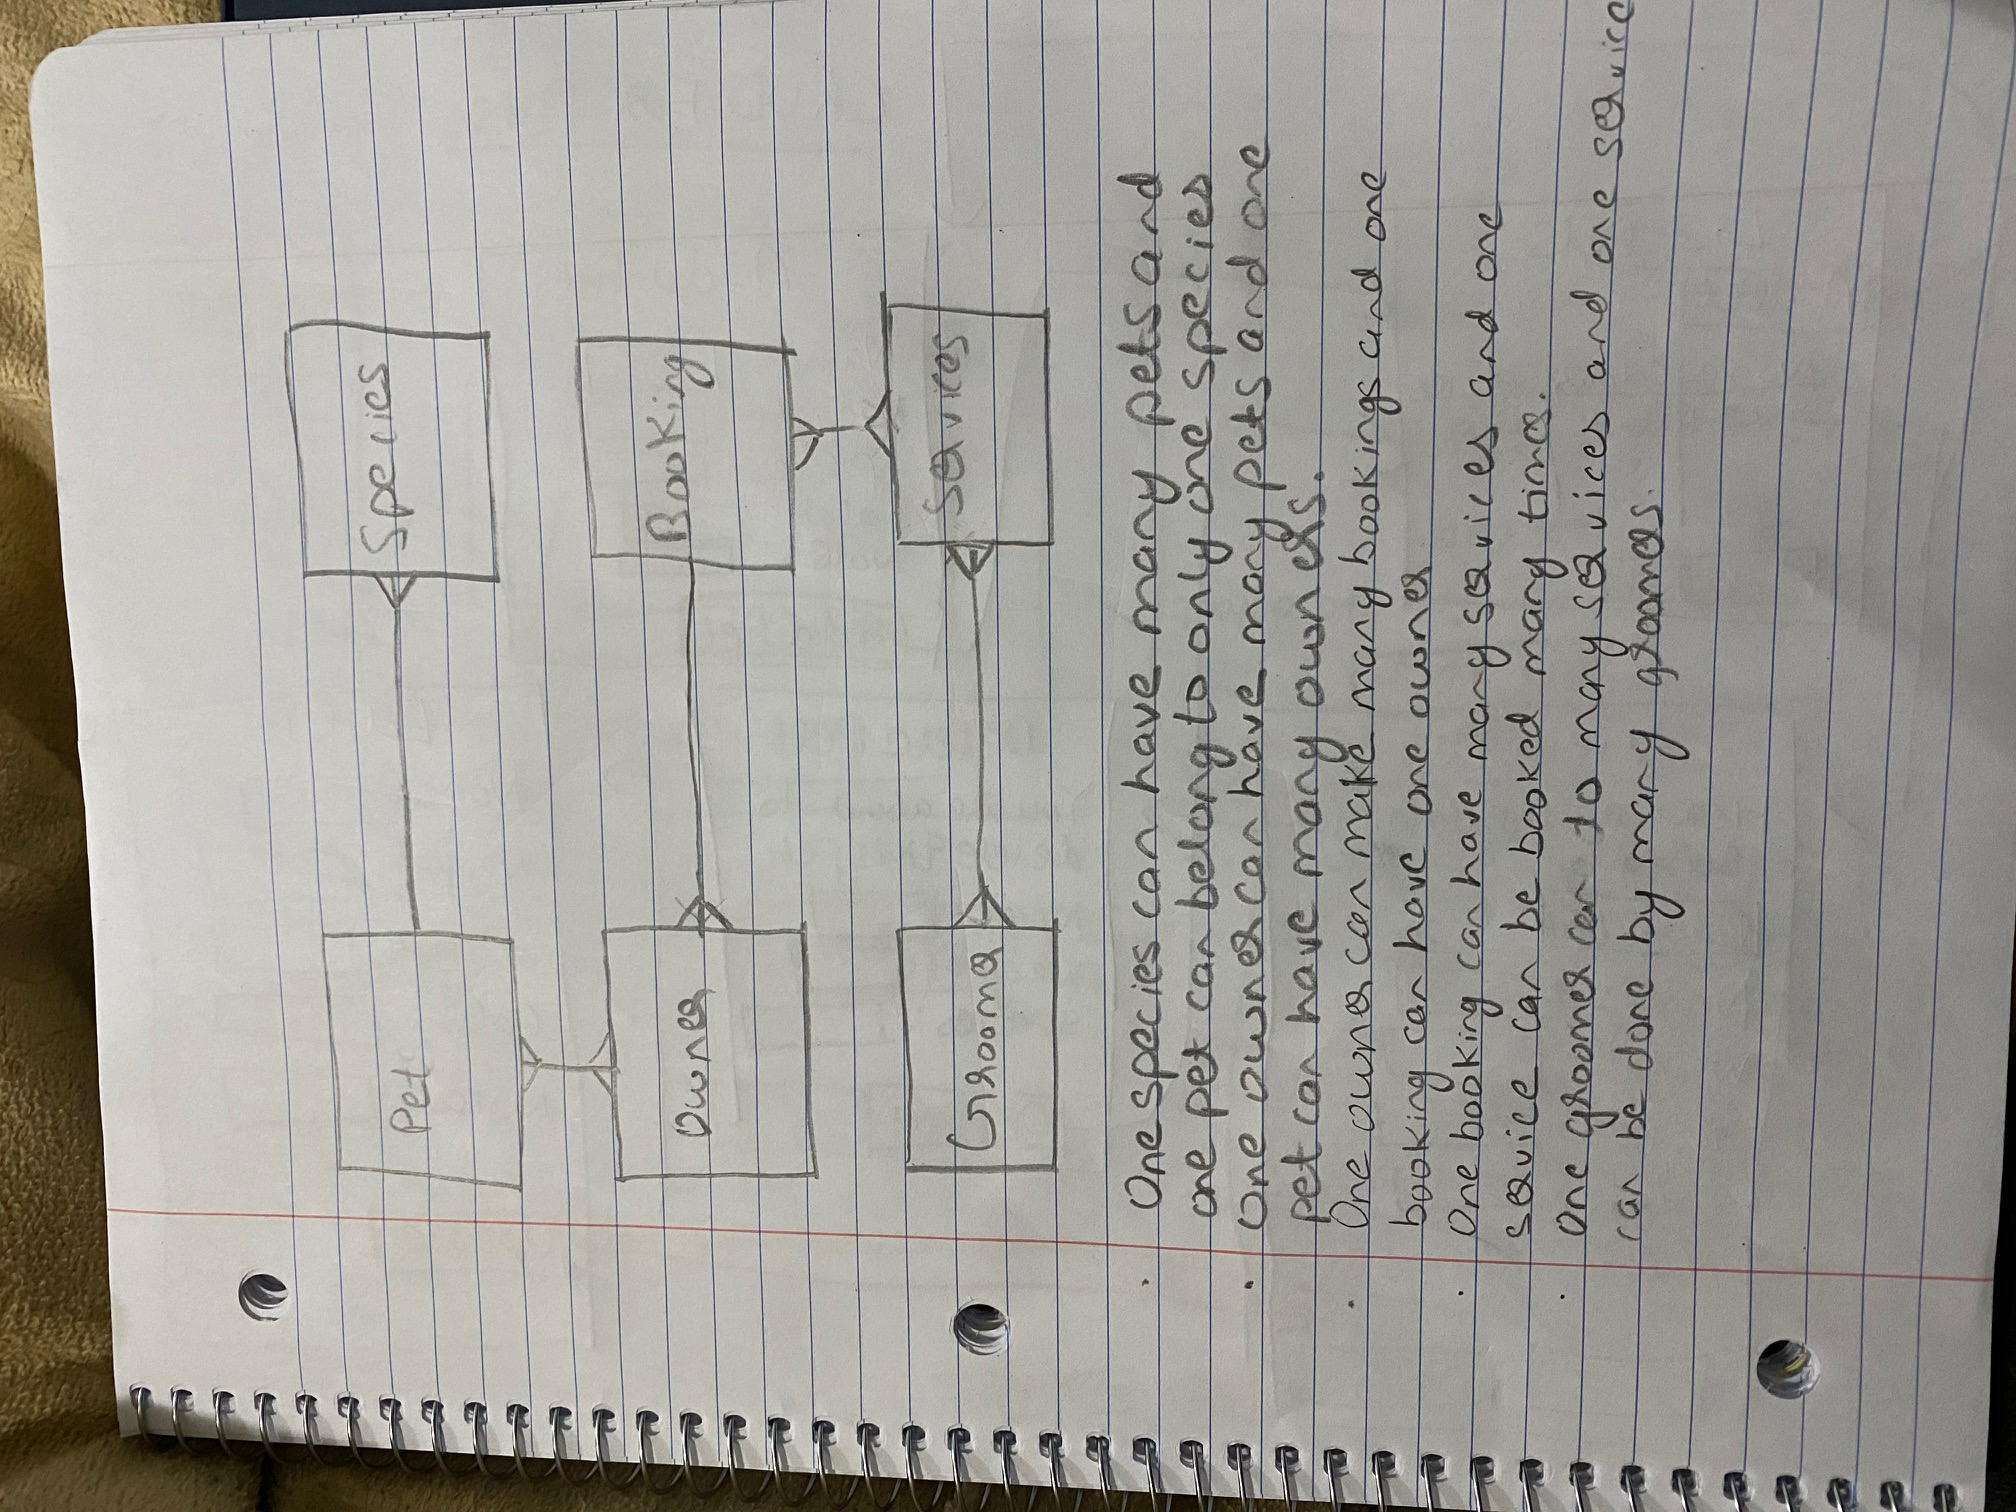 Pet
Species
Owner
Booking
Groomer
Services
One species can have many pets and
one pet can belong to only one species
One owner can have many pets and one
pet can have many owners.
One owner can make many bookings and one
booking can have one owner
One booking can have many services and one
service can be booked many times.
One groomer can to many services and one service
can be done by many groomers.